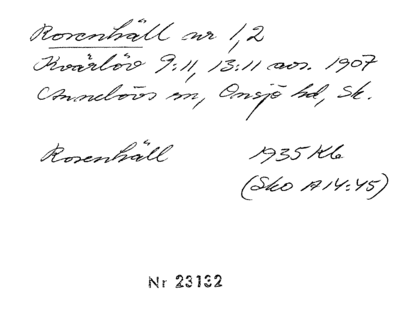 Rosenhäll nr 1,2
Kvärlöv 9:11, 13:11 avs. 1907
Annelövs sn, Onsjö hd, Sk.
Rosenhäll 1935 Kb
(Sko A14:45)
Nr 23132